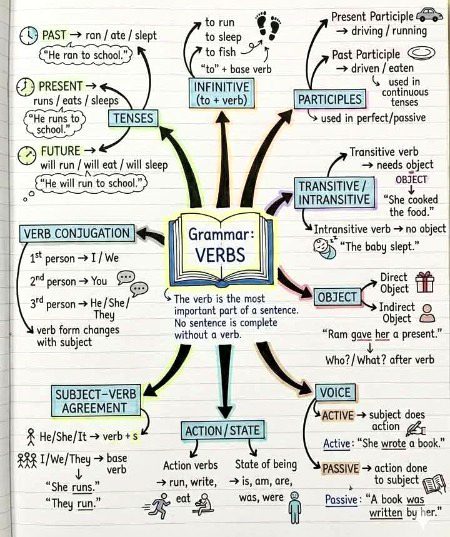 Grammar:
VERBS
The verb is the most
important part of a sentence.
No sentence is complete
without a verb.
TENSES
PAST → ran / ate / slept
"He ran to school."
PRESENT →
runs / eats / sleeps
"He runs to
school."
FUTURE →
will run / will eat / will sleep
"He will run to school."
INFINITIVE
(to + verb)
to run
to sleep
to fish
"to" + base verb
PARTICIPLES
Present Participle
→ driving / running
Past Participle
→ driven / eaten
used in
continuous
tenses
used in perfect/passive
TRANSITIVE /
INTRANSITIVE
Transitive verb
→ needs object
OBJECT
→ "She cooked
the food."
Intransitive verb → no object
"The baby slept."
OBJECT
Direct
Object
Indirect
Object
"Ram gave her a present."
Who?/What? after verb
VOICE
ACTIVE → subject does
action
Active: "She wrote a book."
PASSIVE → action done
to subject
Passive: "A book was
written by her."
ACTION/STATE
Action verbs
→ run, write,
eat
State of being
→ is, am, are,
was, were
SUBJECT-VERB
AGREEMENT
He/She/It → verb + s
I/We/They → base
verb
→ "She runs."
"They run."
VERB CONJUGATION
1st person → I / We
2nd person → You
3rd person → He/She/
They
verb form changes
with subject